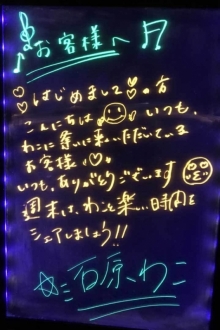 お客様へ
はじめまして♡の方
こんにちは いつも、
わこに会いに来ていただいている
お客様♡
いつも、ありがとうございます
週末は、わこと楽しい時間を
シェアしましょう!!
石原わこ